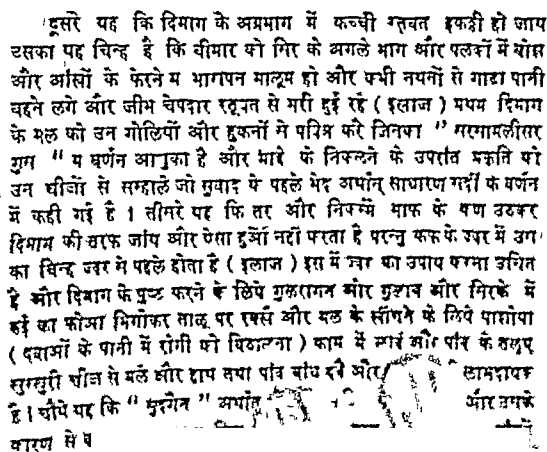 दूसरे यह कि दिमाग के अग्रभाग में कच्ची रतूवत इकट्ठी हो जाय
उसका यह चिन्ह है कि बीमार को शिर के अगले भाग और पलकों में बोझ
और आंखों के फेरने में भारापन मालूम हो और कभी नथनों से गाढा पानी
बहने लगे और जीभ चेपदार रतूवत से भरी हुई रहे ( इलाज ) प्रथम दिमाग
के मल को उन गोलियों और हुकनों से पवित्र करे जिनका " सरसामलीसर
गुस " में वर्णन आचुका है और मादे के निकलने के उपरांत प्रकृति को
उन चीजों से सम्हाले जो सुवाद के पहले भेद अर्थात् साधारण सर्दी के वर्णन
में कही गई हैं । तीसरे यह कि तर और निकम्मे भाफ के कण उठकर
दिमाग की तरफ जांय और ऐसा हुआँ नहीं करता है परन्तु कफ के ज्वर में उस
का चिन्ह ज्वर से पहले होता है ( इलाज ) इस में ज्वर का उपाय करना उचित
है और दिमाग के पुष्ट करने के लिये गुलरोगन और गुलाब और सिरके में
रुई का फोआ भिगोकर तालू पर रक्खें और मल के खींचने के लिये पाशोया
( दवाओं के पानी में रोगी को बिठालना ) काम में लावें और पांव के तलुए
खुरखुरी चीज से मलें और हाथ तथा पांव बांध दें और लाभदायक
है । चौथे यह कि " अर्थात् और उसके
कारण से